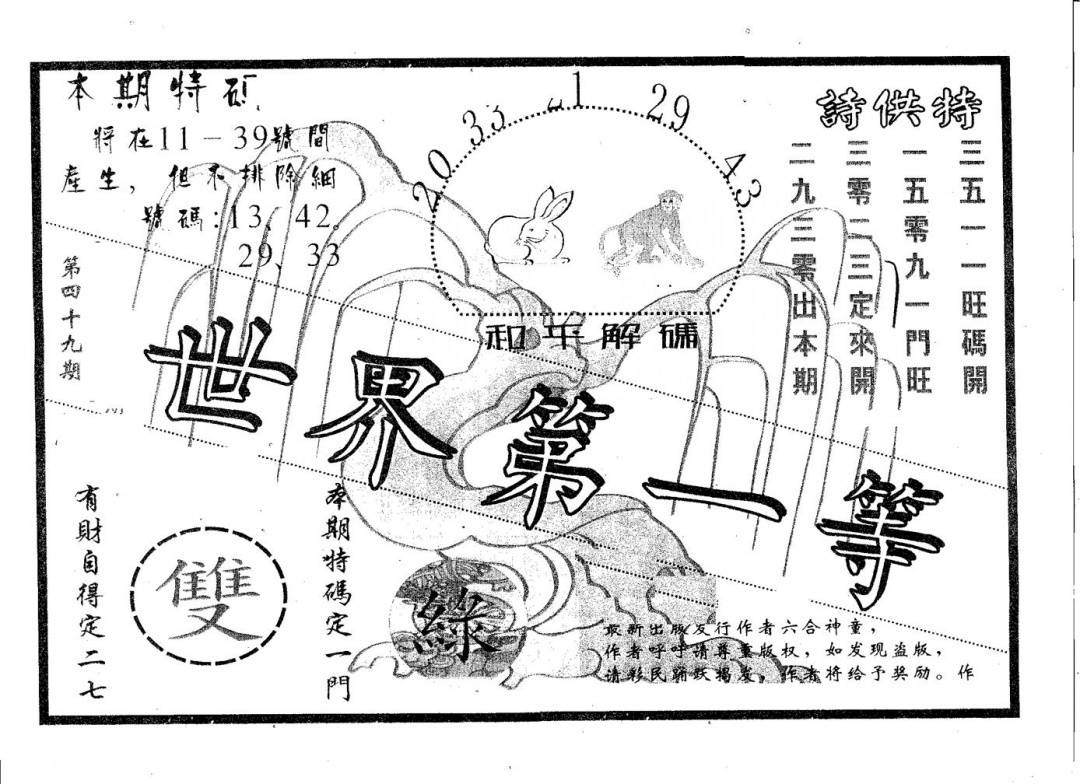 本期特碼
將在11－39號間
產生，但不排除細
號碼:13、42、
29、33
第四十九期
20 33 1 29 43
和平解碼
特供詩
三五一一旺碼開
一五零九一門旺
三零二三定來開
二九三零出本期
世界第一等
本期特碼定一門
有財自得定二七
雙
綠
最新出版发行作者六合神童，
作者呼呼请尊重版权，如发现盗版，
请彩民踊跃揭发，作者将给予奖励。作